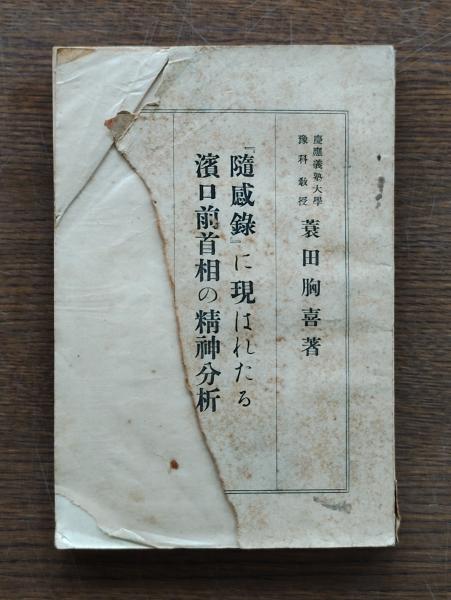 慶應義塾大學
豫科教授
蓑田胸喜著
『隨感錄』に現はれたる
濱口前首相の精神分析